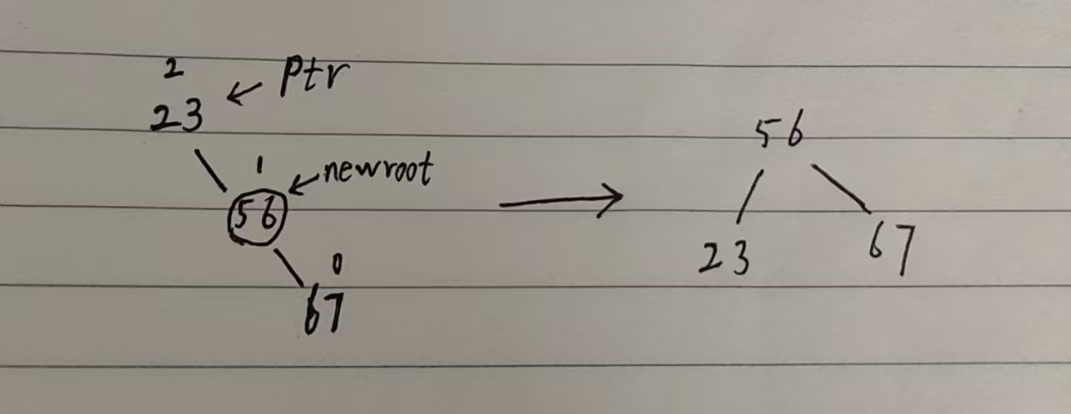 2
23 ← Ptr
56
1
56 ← newroot
23
67
0
67